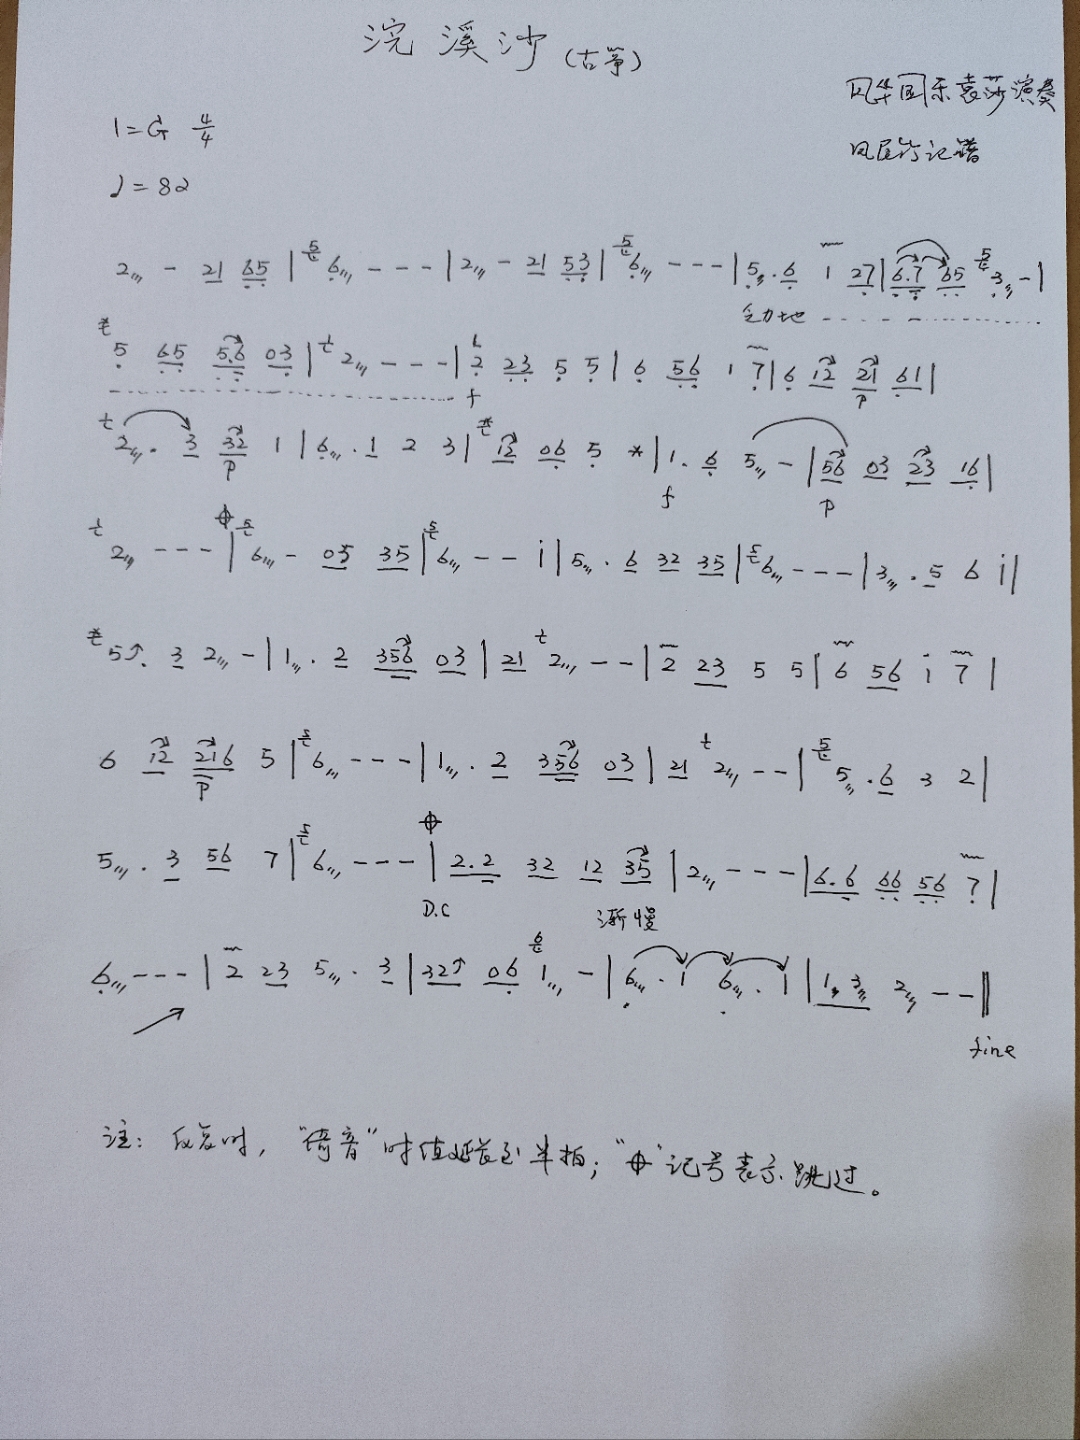 浣溪沙(古筝)
风华国乐袁莎演奏
1=G 4/4
记谱
♩=82
2,,, - 21 65 | 5 6,,, - - - | 2,,, - 21 53 | 5 6,,, - - - | 5,,. 6 1 27 | 6.7 65 5 3,,, - |
5 65 5.6 03 | 2,,, - - - | 2 23 5 5 | 6 56 1 7 | 6 12 21 61 |
f p
2,,,. 3 32 1 | 6,,,. 1 2 3 | 12 06 5 * | 1. 6 5,,, - | 56 03 23 16 |
p f p
2,,, - - - | 5 6,,, - 05 35 | 5 6,,, - - i | 5,,,. 6 32 35 | 5 6,,, - - - | 3,,,. 5 6 i |
5↗. 3 2,,, - | 1,,,. 2 356 03 | 21 2,,, - - | 2 23 5 5 | 6 56 i 7 |
6 12 216 5 | 5 6,,, - - - | 1,,,. 2 356 03 | 21 2,,, - - | 5 5,,,. 6 3 2 |
p
5,,,. 3 56 7 | 5 6,,, - - - | 2.2 32 12 35 | 2,,, - - - | 6.6 66 56 7 |
D.C 渐慢
6,,, - - - | 2 23 5,,,. 3 | 32↗ 06 6 1,,, - | 6,,,. 1 6,,,. 1 | 1,, 3,, 2,,, - - ‖
fine
注: 反复时,“倚音”时值延长至半拍;“⊕”记号表示跳过。